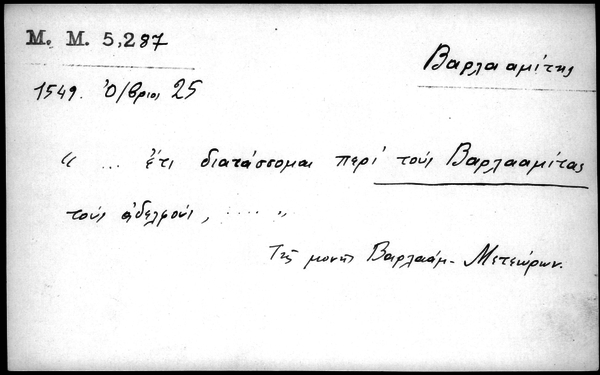 Μ. Μ. 5,287
Βαρλααμίτης
1549. Ὀ/βριος 25
" ... ἔτι διατάσσομαι περί τούς Βαρλααμίτας
τούς ἀδελφούς, ..... "
Τῆς μονῆς Βαρλαάμ - Μετεώρων.